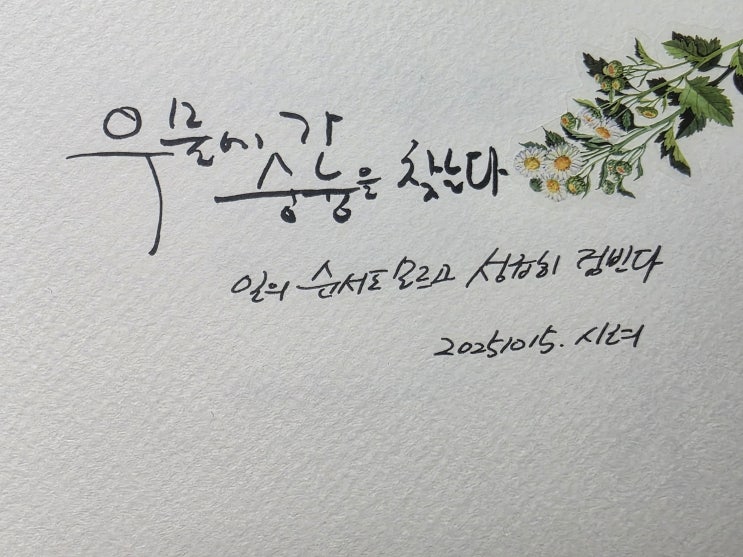 우물에 가 숭늉을 찾는다
일의 순서도 모르고 성급히 덤빈다
20251015. 시녀